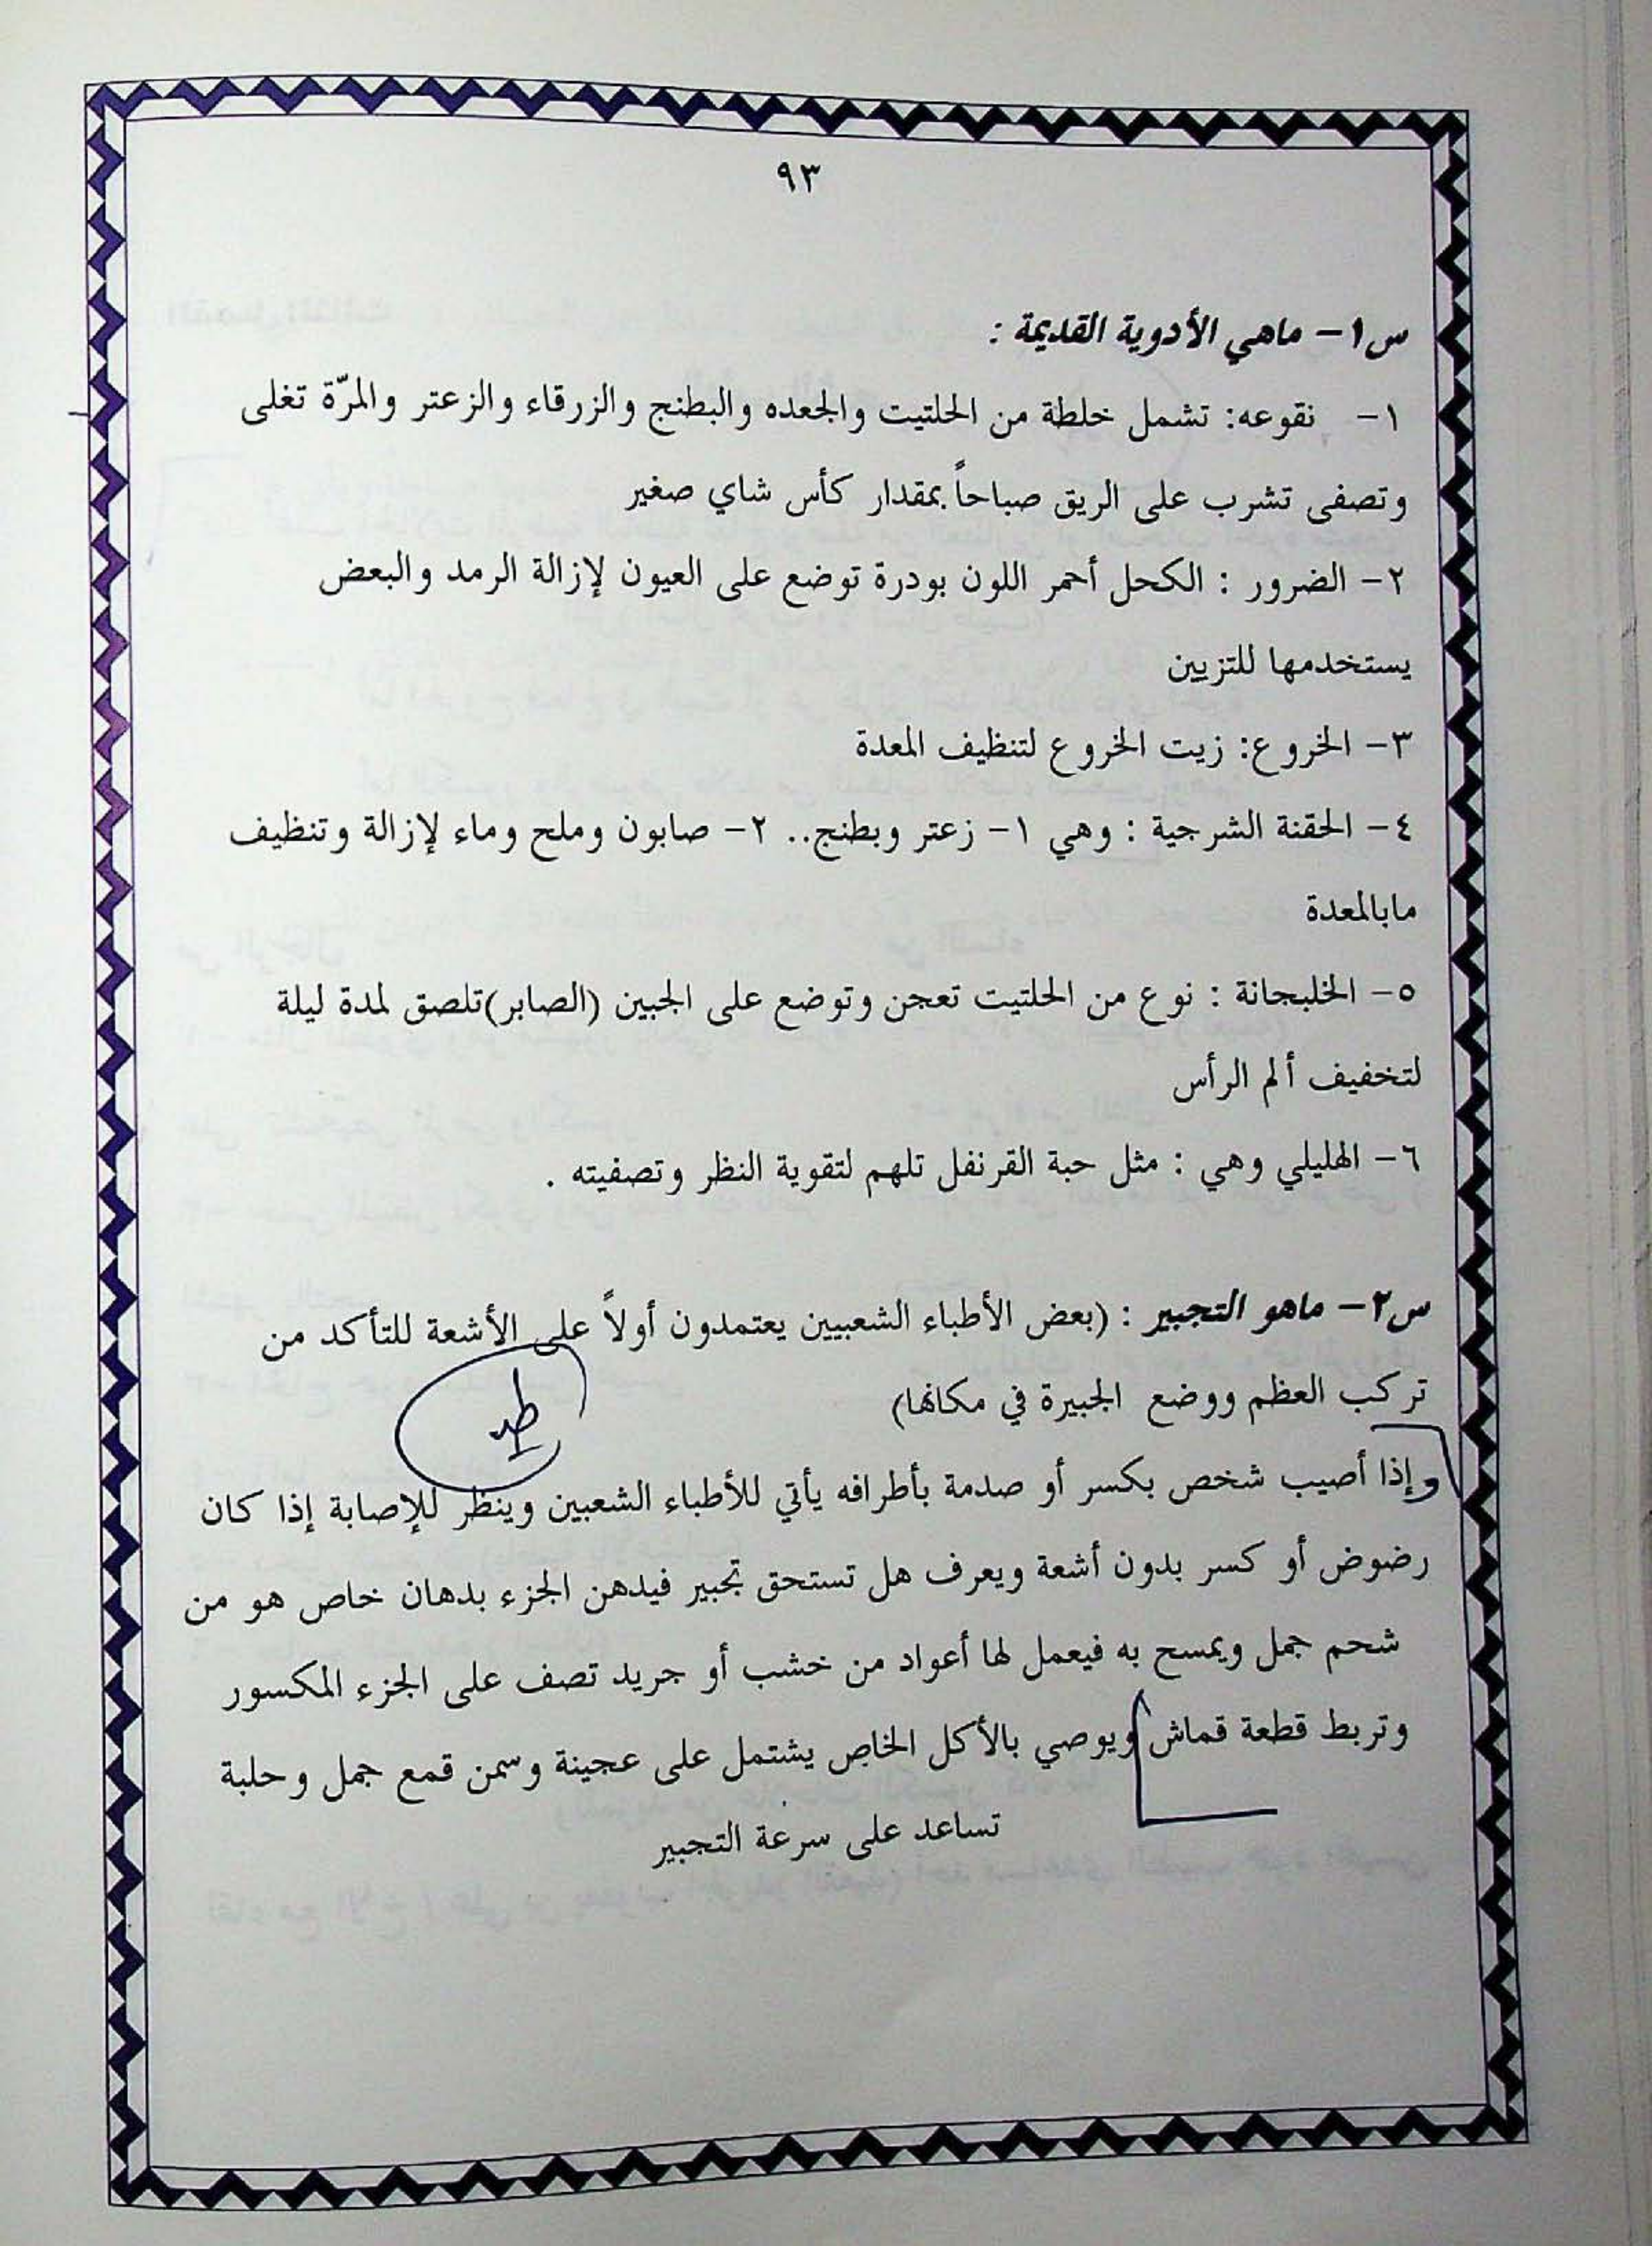 ٩٣
س١- ماهي الأدوية القديمة :
١- نقوعه: تشمل خلطة من الحلتيت والجعده والبطنج والزرقاء والزعتر والمرّة تغلى
وتصفى تشرب على الريق صباحاً بمقدار كأس شاي صغير
٢- الضرور : الكحل أحمر اللون بودرة توضع على العيون لإزالة الرمد والبعض
يستخدمها للتزيين
٣- الخروع: زيت الخروع لتنظيف المعدة
٤- الحقنة الشرجية : وهي ١- زعتر وبطنج.. ٢- صابون وملح وماء لإزالة وتنظيف
مابالمعدة
٥- الخلبجانة : نوع من الحلتيت تعجن وتوضع على الجبين (الصابر)تلصق لمدة ليلة
لتخفيف ألم الرأس
٦- الهليلي وهي : مثل حبة القرنفل تلهم لتقوية النظر وتصفيته .
س٢- ماهو التجبير : (بعض الأطباء الشعبيين يعتمدون أولاً على الأشعة للتأكد من
تركب العظم ووضع الجبيرة في مكانها)
وإذا أصيب شخص بكسر أو صدمة بأطرافه يأتي للأطباء الشعبين وينظر للإصابة إذا كان
رضوض أو كسر بدون أشعة ويعرف هل تستحق تجبير فيدهن الجزء بدهان خاص هو من
شحم جمل ويمسح به فيعمل لها أعواد من خشب أو جريد تصف على الجزء المكسور
وتربط قطعة قماش ويوصي بالأكل الخاص يشتمل على عجينة وسمن قمع جمل وحلبة
تساعد على سرعة التجبير